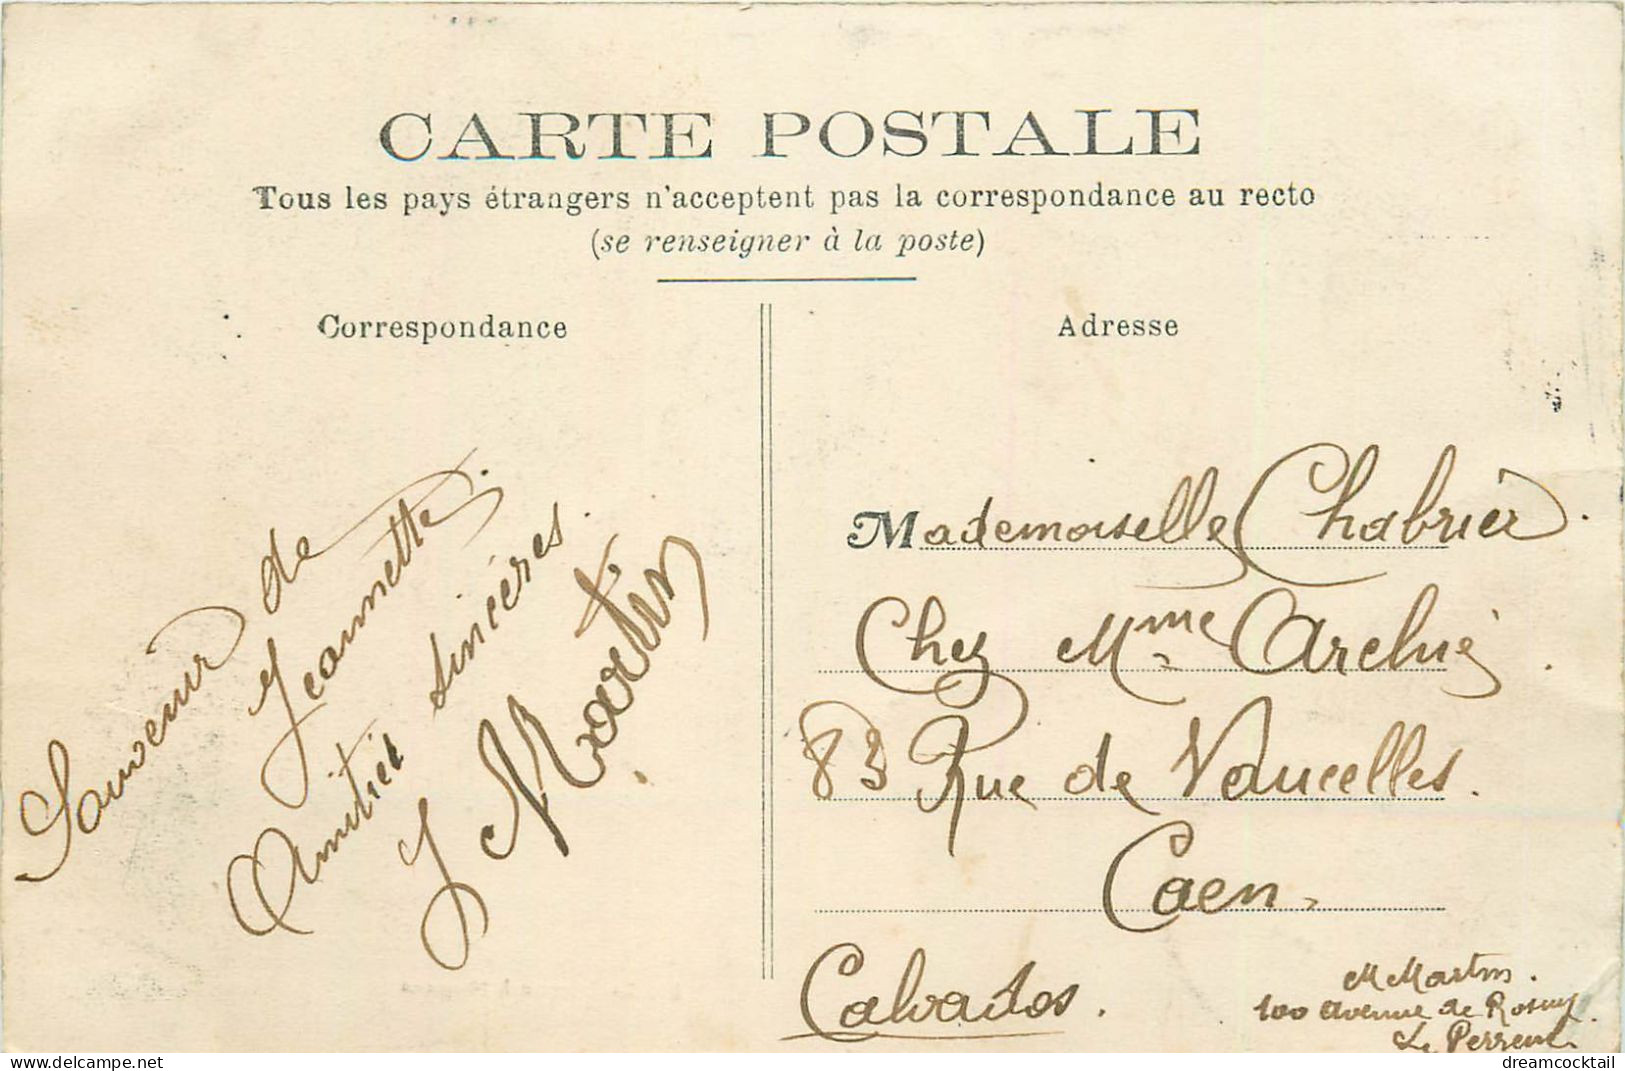 CARTE POSTALE
Tous les pays étrangers n'acceptent pas la correspondance au recto
(se renseigner à la poste)
Correspondance
Souvenir de
Jeannette.
Amitiés sincères.
J Martin
Adresse
Mademoiselle Chabrier.
Chez Mme
83 Rue de Vaucelles.
Caen.
Calvados.
M Martin.
100 avenue de Rosny
Le Perreux
dreamcocktail